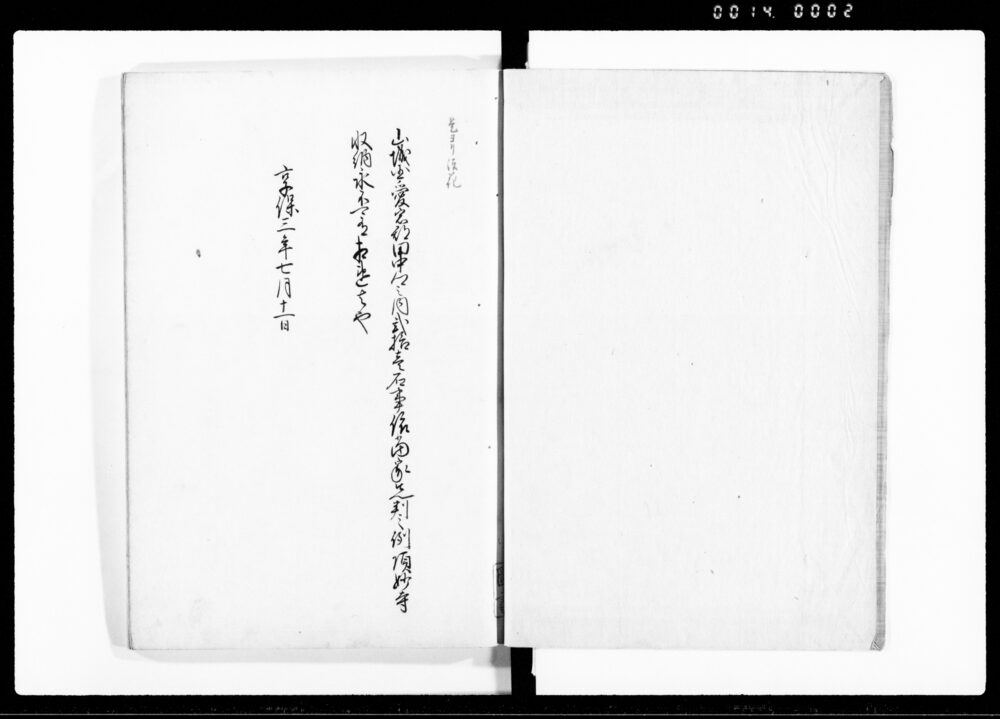 0014 0002
是ヨリ法花
山城国愛宕郡田中村之内弐拾壱石事依当家先判之例頂妙寺
収納永不可有相違者也
享保三年七月十一日